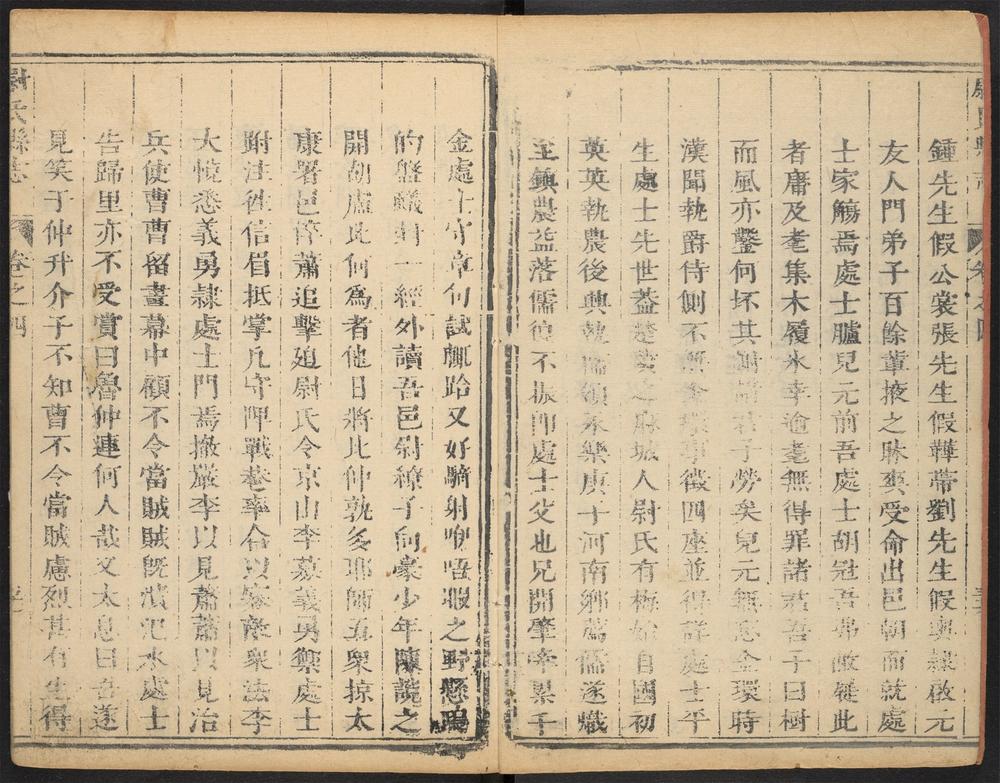 鍾先生假公裳張先生假鞾帶劉先生假輿隷啟元
友人門弟子百餘輩掖之牀爽受命出邑朝而就處
士家觴焉處士臚兒元前吾處士胡冠吾弗敢徒此
者庸及耄集木履氷幸逾耄無得罪諸君吾子曰樹
而風亦鑿何坏其君子勞矣兒元無忘金環時
漢聞執爵侍側不徵四座並得詳處士平
生處士先世蓋楚黃之麻城人尉氏有梅始自國初
英英執農後興執儒領永樂庚子河南鄉薦儒遂熾
至鎮農益落儒復不振卽處士父也兄開肇牽累千
金處士守章句試輒跲又好騎射喑啞暇之野懸鵠
的盤蟻封一經外讀吾邑尉繚子何豪少年陳說之
開胡盧此何爲者他日將比仲孰多耶師五衆掠太
康署邑倅蕭追擊廹尉氏令京山李募義勇禦處士
跗注徃信眉抵掌凡守陴戰巷率合以衆法李
大悅悉義勇隷處士門焉撤嚴李以見蕭蕭以見治
兵使曹曹留畫幕中顧不令當賊賊旣潰汜水處士
告歸里亦不受賞曰魯仲連何人哉又太息曰吾遂
見笑于仲升介子不知曹不令當賊慮烈甚有生得
尉氏縣志
卷之四